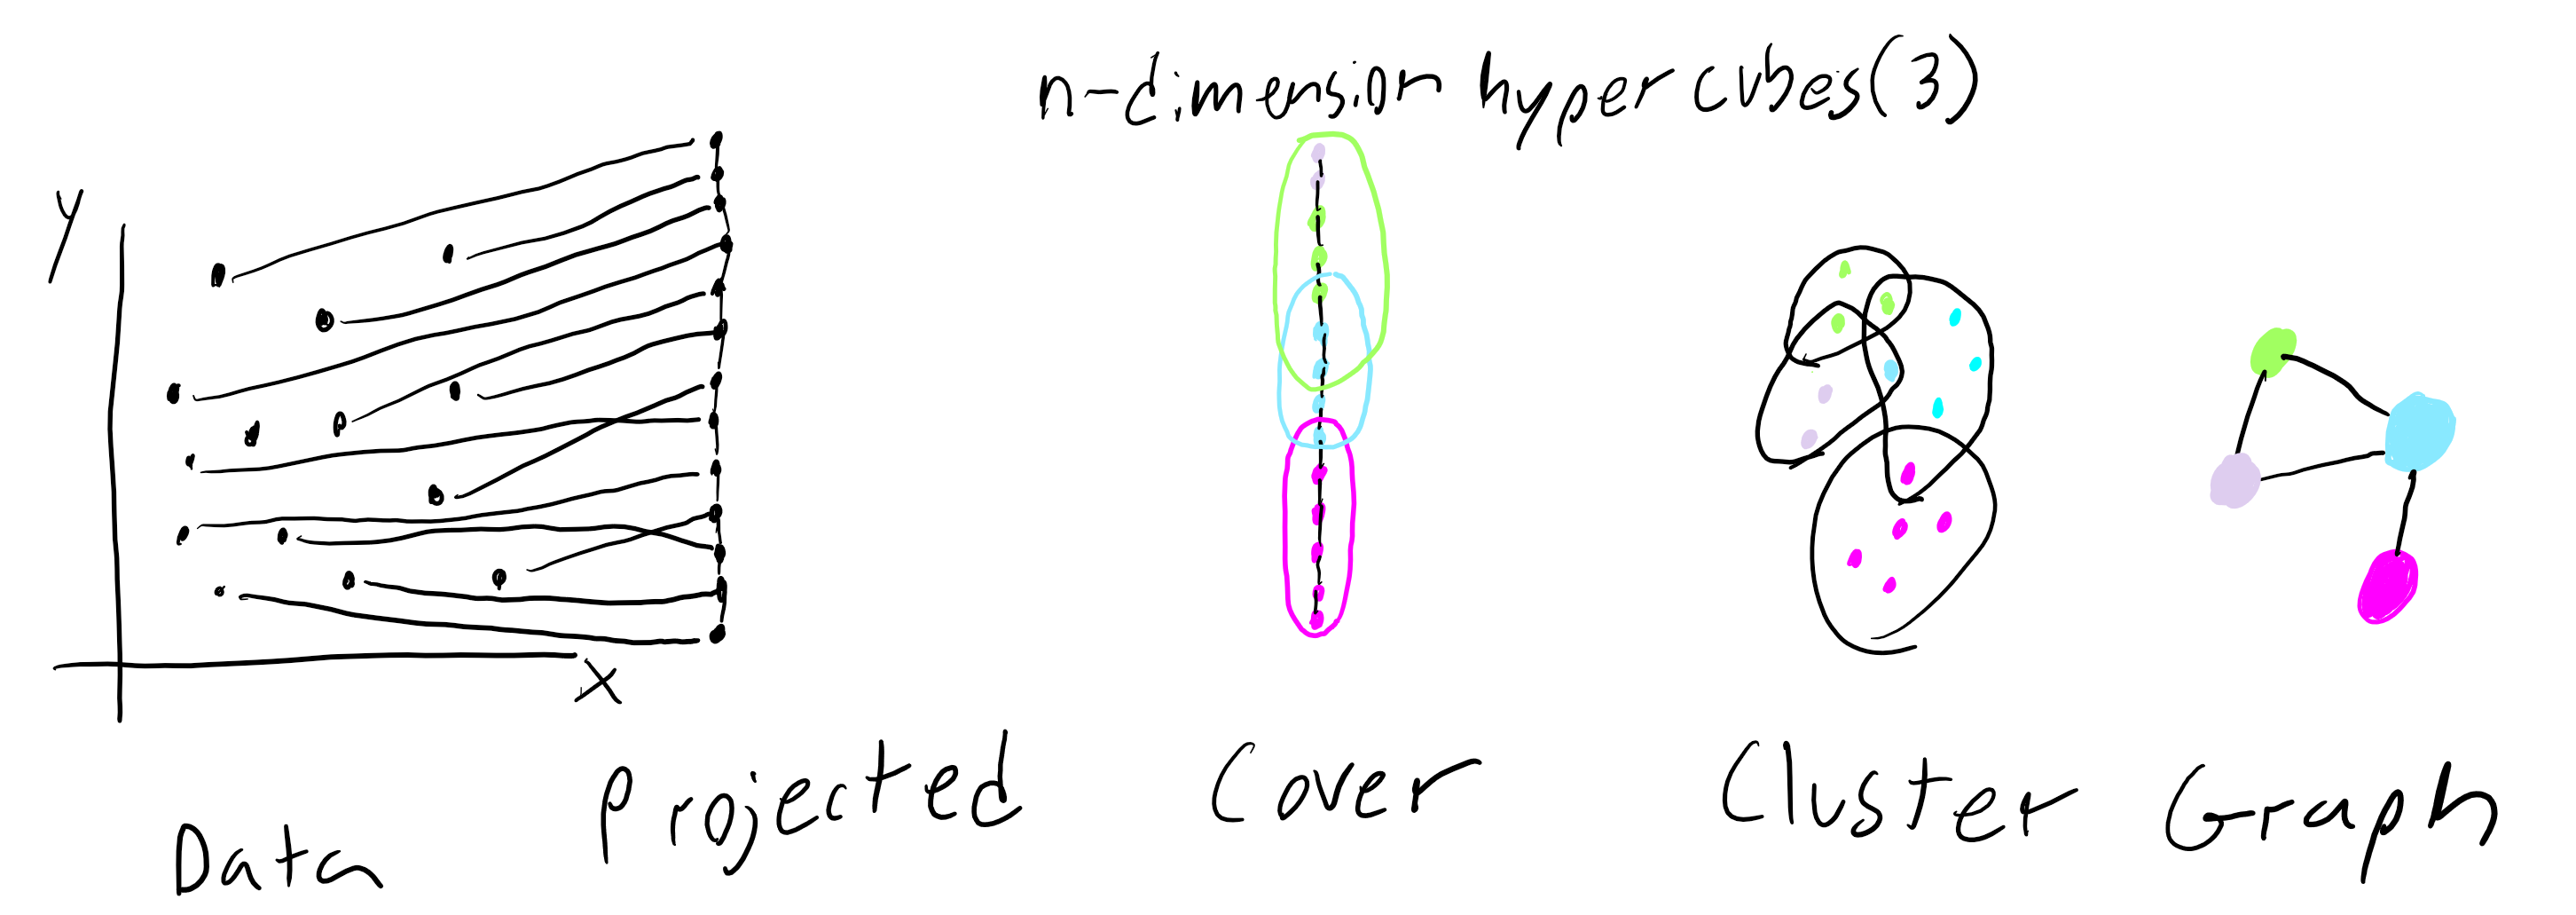 n-dimension hypercubes(3)
y
x
Data
Projected
Cover
Cluster
Graph